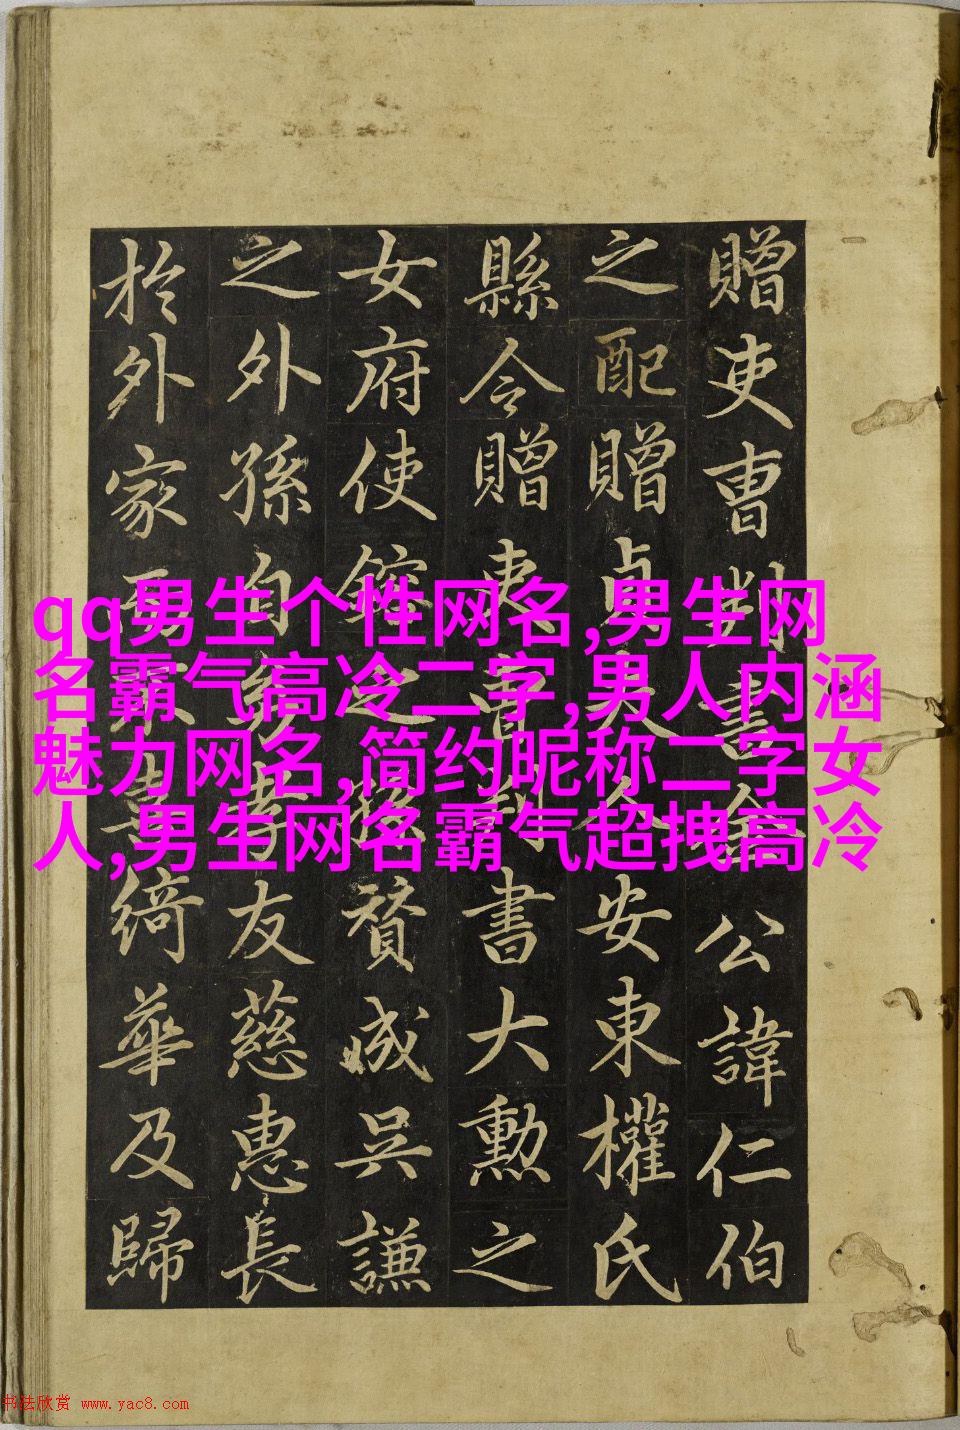 qq男生个性网名,男生网
名霸气高冷二字,男人内涵
魅力网名,简约昵称二字女
人,男生网名霸气超拽高冷
贈吏曹判書金公諱仁伯
之配贈貞夫人安東權氏
縣令贈吏曹判書大勳之
女府使之孫賛成吳謙
之外孫自幼孝友慈惠長
於外家喜綺華及歸
书法欣赏 www.yac8.com